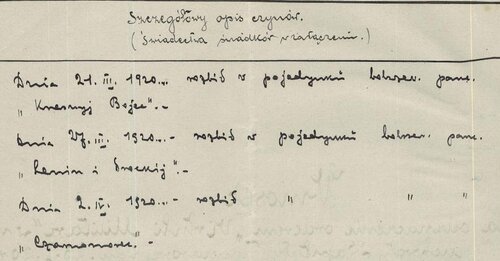 Szczegółowy opis czynów.
(Świadectwa świadków w załączeniu.)
Dnia 21. III. 1920... rozbił w pojedynku bolszew. panc.
„Krasnyj Bojec".-
Dnia 27. III. 1920...- rozbił w pojedynku bolszew. panc.
„Lenin i Trockij".-
Dnia 2. IV. 1920...- rozbił " " "
„Czarnomorec".-